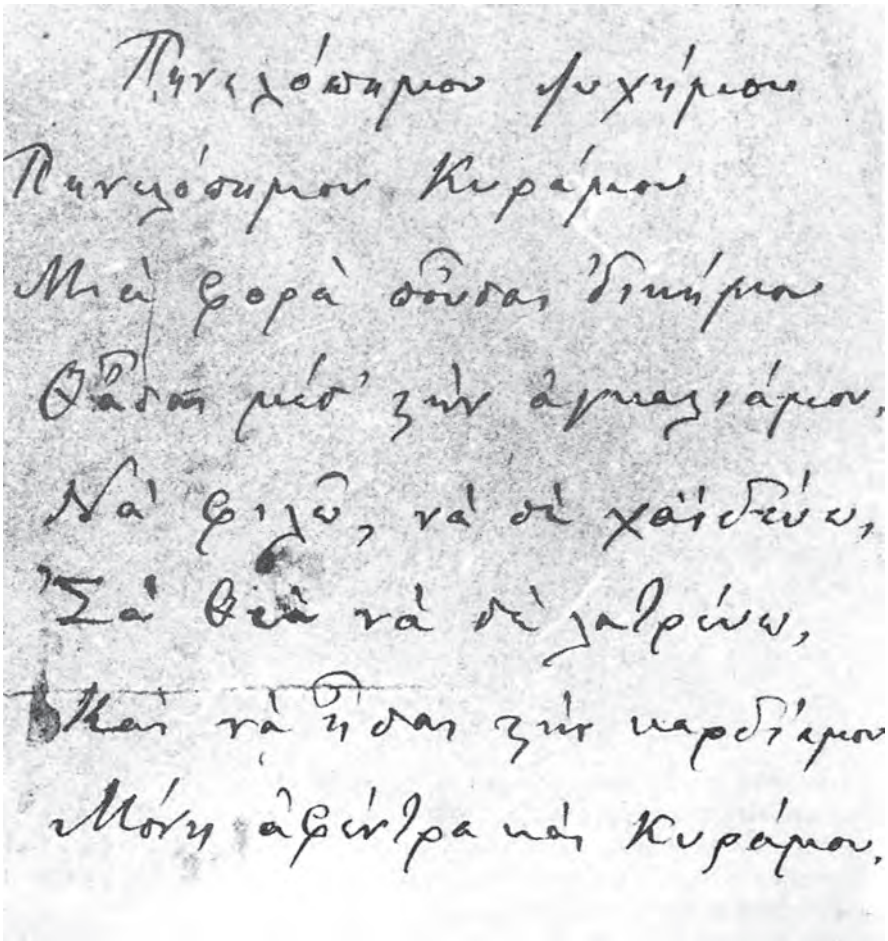 Πηνελόπημου ψυχήμου
Πηνελόπημου Κυράμου
Μιὰ φορὰ ποῦσαι ’δικήμου
Θᾆσαι μέσ’ ’ς τὴν ἀγκαλιάμου,
Νὰ φιλῶ, νὰ σὲ χαϊδεύω,
Σὰ θεὰ νὰ σὲ λατρεύω,
Καὶ νὰ ἦσαι ’ς τὴν καρδιάμου
Μόνη ἀφέντρα καὶ Κυράμου.